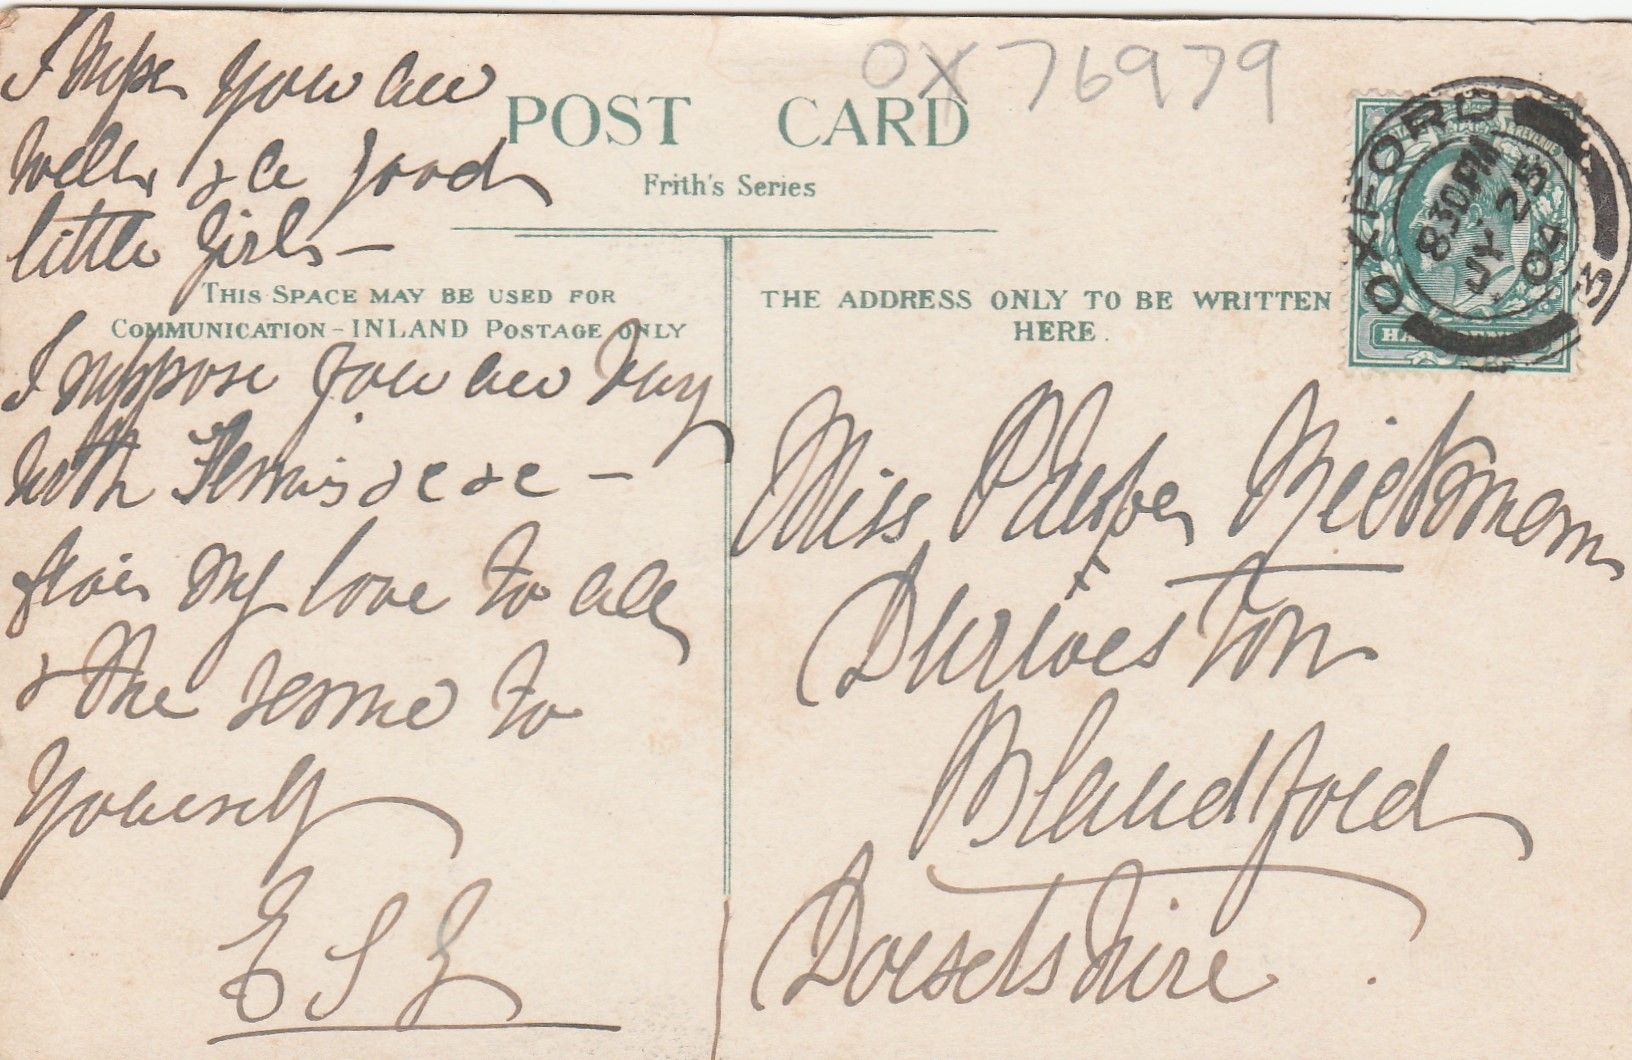 I hope you are
well, & a good
little girls –
I suppose you are busy
with Tennis &c &c –
Give my love to all
& the same to
Yourself
E S G
OX 76979
POST CARD
Frith's Series
THIS SPACE MAY BE USED FOR
COMMUNICATION – INLAND POSTAGE ONLY
THE ADDRESS ONLY TO BE WRITTEN
HERE.
OXFORD
8.30 PM
JY 25
04
3
REVENUE
Miss
Durweston
Blandford
Dorsetshire.